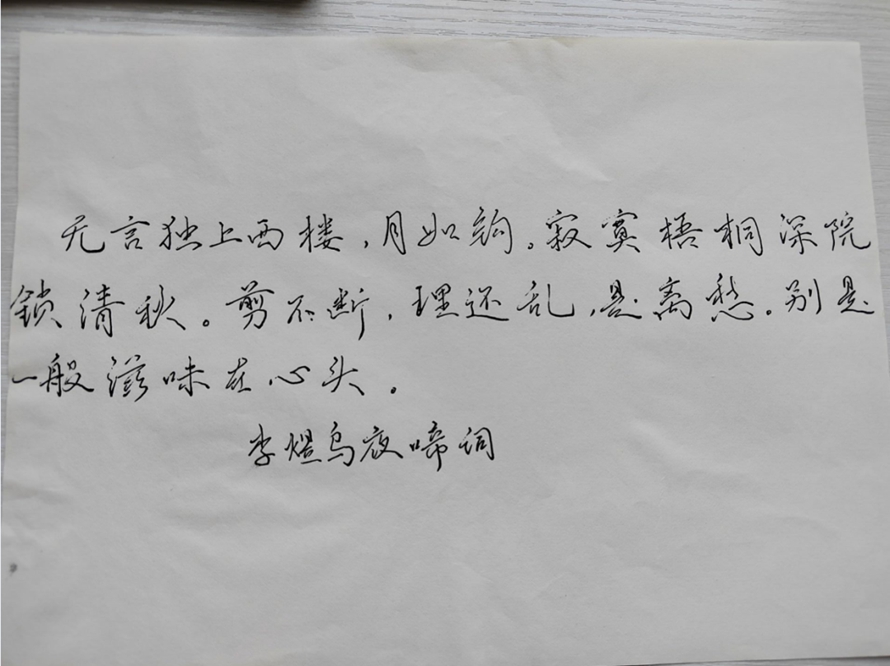 无言独上西楼，月如钩。寂寞梧桐深院
锁清秋。剪不断，理还乱，是离愁。别是
一般滋味在心头。
李煜乌夜啼词